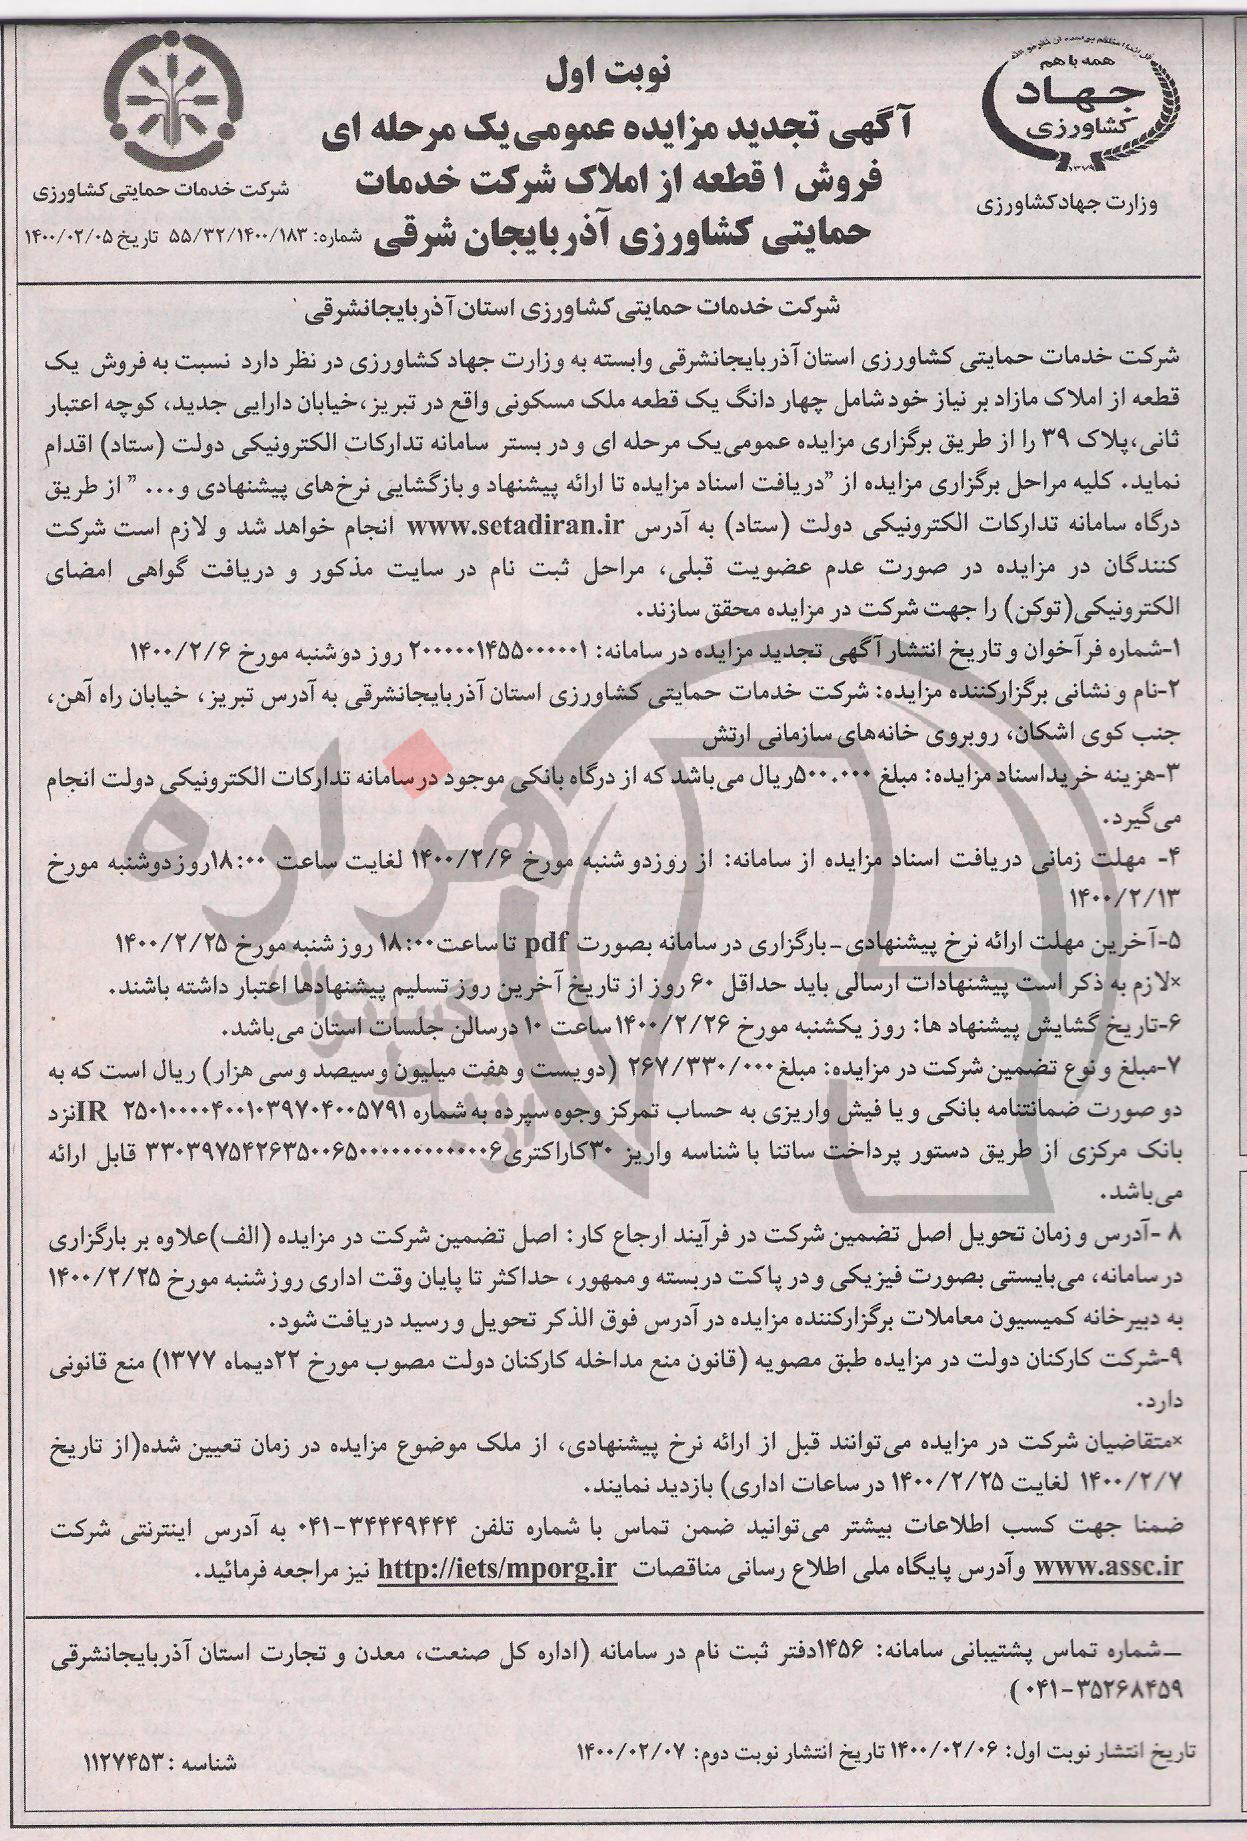 همه با هم
جهاد
کشاورزی
۱۳۷۹
وزارت جهاد کشاورزی
نوبت اول
آگهی تجدید مزایده عمومی یک مرحله ای
فروش ۱ قطعه از املاک شرکت خدمات
حمایتی کشاورزی آذربایجان شرقی
شرکت خدمات حمایتی کشاورزی
شماره: ۵۵/۳۲/۱۴۰۰/۱۸۳ تاریخ ۱۴۰۰/۰۲/۰۵
شرکت خدمات حمایتی کشاورزی استان آذربایجانشرقی
شرکت خدمات حمایتی کشاورزی استان آذربایجانشرقی وابسته به وزارت جهاد کشاورزی در نظر دارد نسبت به فروش یک
قطعه از املاک مازاد بر نیاز خود شامل چهار دانگ یک قطعه ملک مسکونی واقع در تبریز،خیابان دارایی جدید، کوچه اعتبار
ثانی،پلاک ۳۹ را از طریق برگزاری مزایده عمومی یک مرحله ای و در بستر سامانه تدارکات الکترونیکی دولت (ستاد) اقدام
نماید. کلیه مراحل برگزاری مزایده از "دریافت اسناد مزایده تا ارائه پیشنهاد و بازگشایی نرخ‌های پیشنهادی و... " از طریق
درگاه سامانه تدارکات الکترونیکی دولت (ستاد) به آدرس www.setadiran.ir انجام خواهد شد و لازم است شرکت
کنندگان در مزایده در صورت عدم عضویت قبلی، مراحل ثبت نام در سایت مذکور و دریافت گواهی امضای
الکترونیکی(توکن) را جهت شرکت در مزایده محقق سازند.
۱-شماره فرآخوان و تاریخ انتشار آگهی تجدید مزایده در سامانه: ۲۰۰۰۰۰۱۴۵۵۰۰۰۰۰۱ روز دوشنبه مورخ ۱۴۰۰/۲/۶
۲-نام و نشانی برگزارکننده مزایده: شرکت خدمات حمایتی کشاورزی استان آذربایجانشرقی به آدرس تبریز، خیابان راه آهن،
جنب کوی اشکان، روبروی خانه‌های سازمانی ارتش
۳-هزینه خریداسناد مزایده: مبلغ ۵۰۰.۰۰۰ریال می‌باشد که از درگاه بانکی موجود در سامانه تدارکات الکترونیکی دولت انجام
می‌گیرد.
۴- مهلت زمانی دریافت اسناد مزایده از سامانه: از روزدو شنبه مورخ ۱۴۰۰/۲/۶ لغایت ساعت ۱۸:۰۰روزدوشنبه مورخ
۱۴۰۰/۲/۱۳
۵-آخرین مهلت ارائه نرخ پیشنهادی-بارگزاری در سامانه بصورت pdf تا ساعت۱۸:۰۰ روز شنبه مورخ ۱۴۰۰/۲/۲۵
×لازم به ذکر است پیشنهادات ارسالی باید حداقل ۶۰ روز از تاریخ آخرین روز تسلیم پیشنهادها اعتبار داشته باشند.
۶-تاریخ گشایش پیشنهاد ها: روز یکشنبه مورخ ۱۴۰۰/۲/۲۶ ساعت ۱۰ درسالن جلسات استان می‌باشد.
۷-مبلغ و نوع تضمین شرکت در مزایده: مبلغ ۲۶۷/۳۳۰/۰۰۰ (دویست و هفت میلیون و سیصد و سی هزار) ریال است که به
دو صورت ضمانتنامه بانکی و یا فیش واریزی به حساب تمرکز وجوه سپرده به شماره IR ۲۵۰۱۰۰۰۰۴۰۰۱۰۳۹۷۰۴۰۰۵۷۹۱نزد
بانک مرکزی از طریق دستور پرداخت ساتنا با شناسه واریز ۳۰کاراکتری۳۳۰۳۹۷۵۴۲۶۳۵۰۰۶۵۰۰۰۰۰۰۰۰۰۰۰۰۰۶ قابل ارائه
می‌باشد.
۸ -آدرس و زمان تحویل اصل تضمین شرکت در فرآیند ارجاع کار: اصل تضمین شرکت در مزایده (الف)علاوه بر بارگزاری
در سامانه، می‌بایستی بصورت فیزیکی و در پاکت دربسته و ممهور، حداکثر تا پایان وقت اداری روز شنبه مورخ ۱۴۰۰/۲/۲۵
به دبیرخانه کمیسیون معاملات برگزارکننده مزایده در آدرس فوق الذکر تحویل و رسید دریافت شود.
۹-شرکت کارکنان دولت در مزایده طبق مصوبه (قانون منع مداخله کارکنان دولت مصوب مورخ ۲۲دیماه ۱۳۷۷) منع قانونی
دارد.
×متقاضیان شرکت در مزایده می‌توانند قبل از ارائه نرخ پیشنهادی، از ملک موضوع مزایده در زمان تعیین شده(از تاریخ
۱۴۰۰/۲/۷ لغایت ۱۴۰۰/۲/۲۵ در ساعات اداری) بازدید نمایند.
ضمنا جهت کسب اطلاعات بیشتر می‌توانید ضمن تماس با شماره تلفن ۳۴۴۴۹۴۴۴-۰۴۱ به آدرس اینترنتی شرکت
www.assc.ir وآدرس پایگاه ملی اطلاع رسانی مناقصات http://iets/mporg.ir نیز مراجعه فرمائید.
-شماره تماس پشتیبانی سامانه: ۱۴۵۶دفتر ثبت نام در سامانه (اداره کل صنعت، معدن و تجارت استان آذربایجانشرقی
۳۵۲۶۸۴۵۹-۰۴۱)
تاریخ انتشار نوبت اول: ۱۴۰۰/۰۲/۰۶ تاریخ انتشار نوبت دوم: ۱۴۰۰/۰۲/۰۷
شناسه : ۱۱۲۷۴۵۳
هزاره